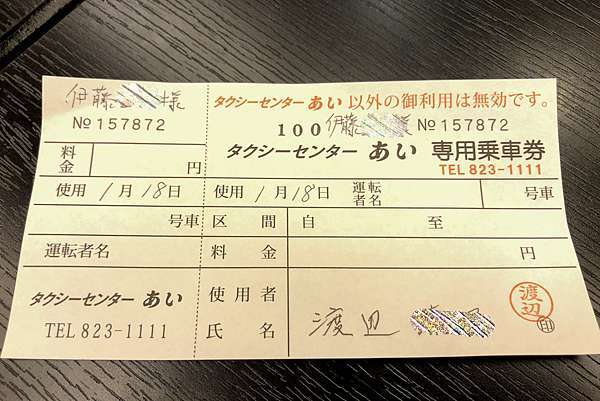 伊藤 様
№157872
料金 円
使用 1月18日
号車
運転者名
タクシーセンター あい
TEL 823-1111
タクシーセンター あい 以外の御利用は無効です。
100 伊藤 様 №157872
タクシーセンター あい 専用乗車券
TEL 823-1111
使用 1月18日 運転者名 号車
区間 自 至
料金 円
使用者氏名 渡辺
渡辺
印